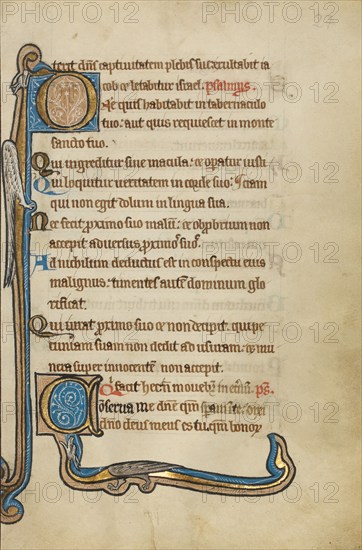 terit dns captiuitatem plebis sue exultabit ia
cob et letabitur israel. psalmus.
Dne quis habitabit in tabernaculo
tuo. aut quis requiescet in monte
sancto tuo.
Qui ingreditur sine macula. et opatur iusti
Qui loquitur ueritatem in corde suo. ciam
qui non egit dolum in lingua sua.
Nec fecit proximo suo malum. et obprbrium non
accepit aduersus proximos suos.
Ad nichilum deductus est in conspectu eius
malignus. timentes autem dominum glo
rificat.
Qui iurat proximo suo et non decipit. qui pe
cuniam suam non dedit ad usuram. et mu
nera super innocentem non accepit.
Qui facit hec non mouebitur in etnum. ps.
Conserua me dne qm speraui in te. dixi
dno deus meus es tu. qm bonor